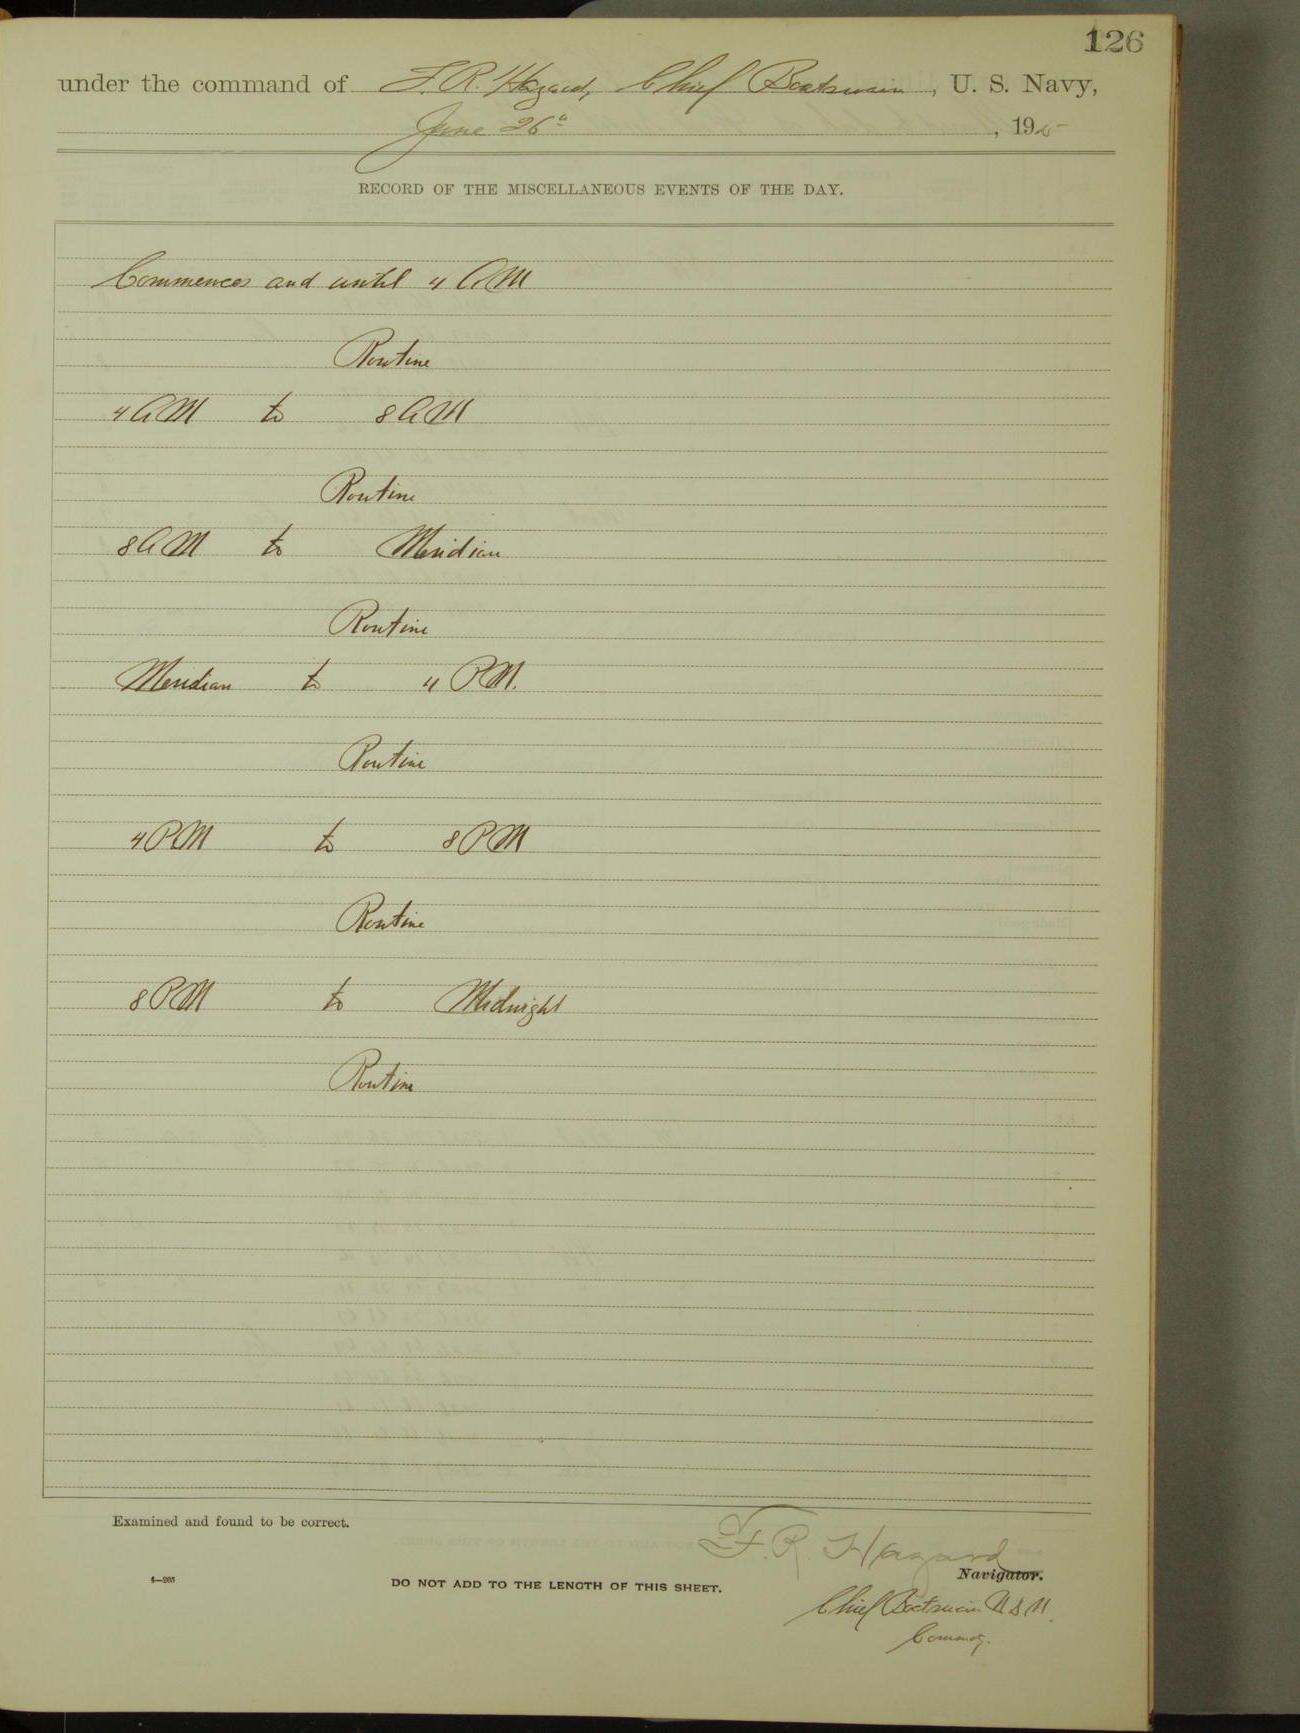 126
under the command of F. R. Hazard, Chief Boatswain, U. S. Navy,
June 26th, 19
RECORD OF THE MISCELLANEOUS EVENTS OF THE DAY.
Commences and until 4 AM
Routine
4 AM to 8 AM
Routine
8 AM to Meridian
Routine
Meridian to 4 PM.
Routine
4 PM to 8 PM
Routine
8 PM to Midnight
Routine
Examined and found to be correct.
F. R. Hazard
Navigator.
4—265
DO NOT ADD TO THE LENGTH OF THIS SHEET.
Chief Boatswain U S N.
Commdg.